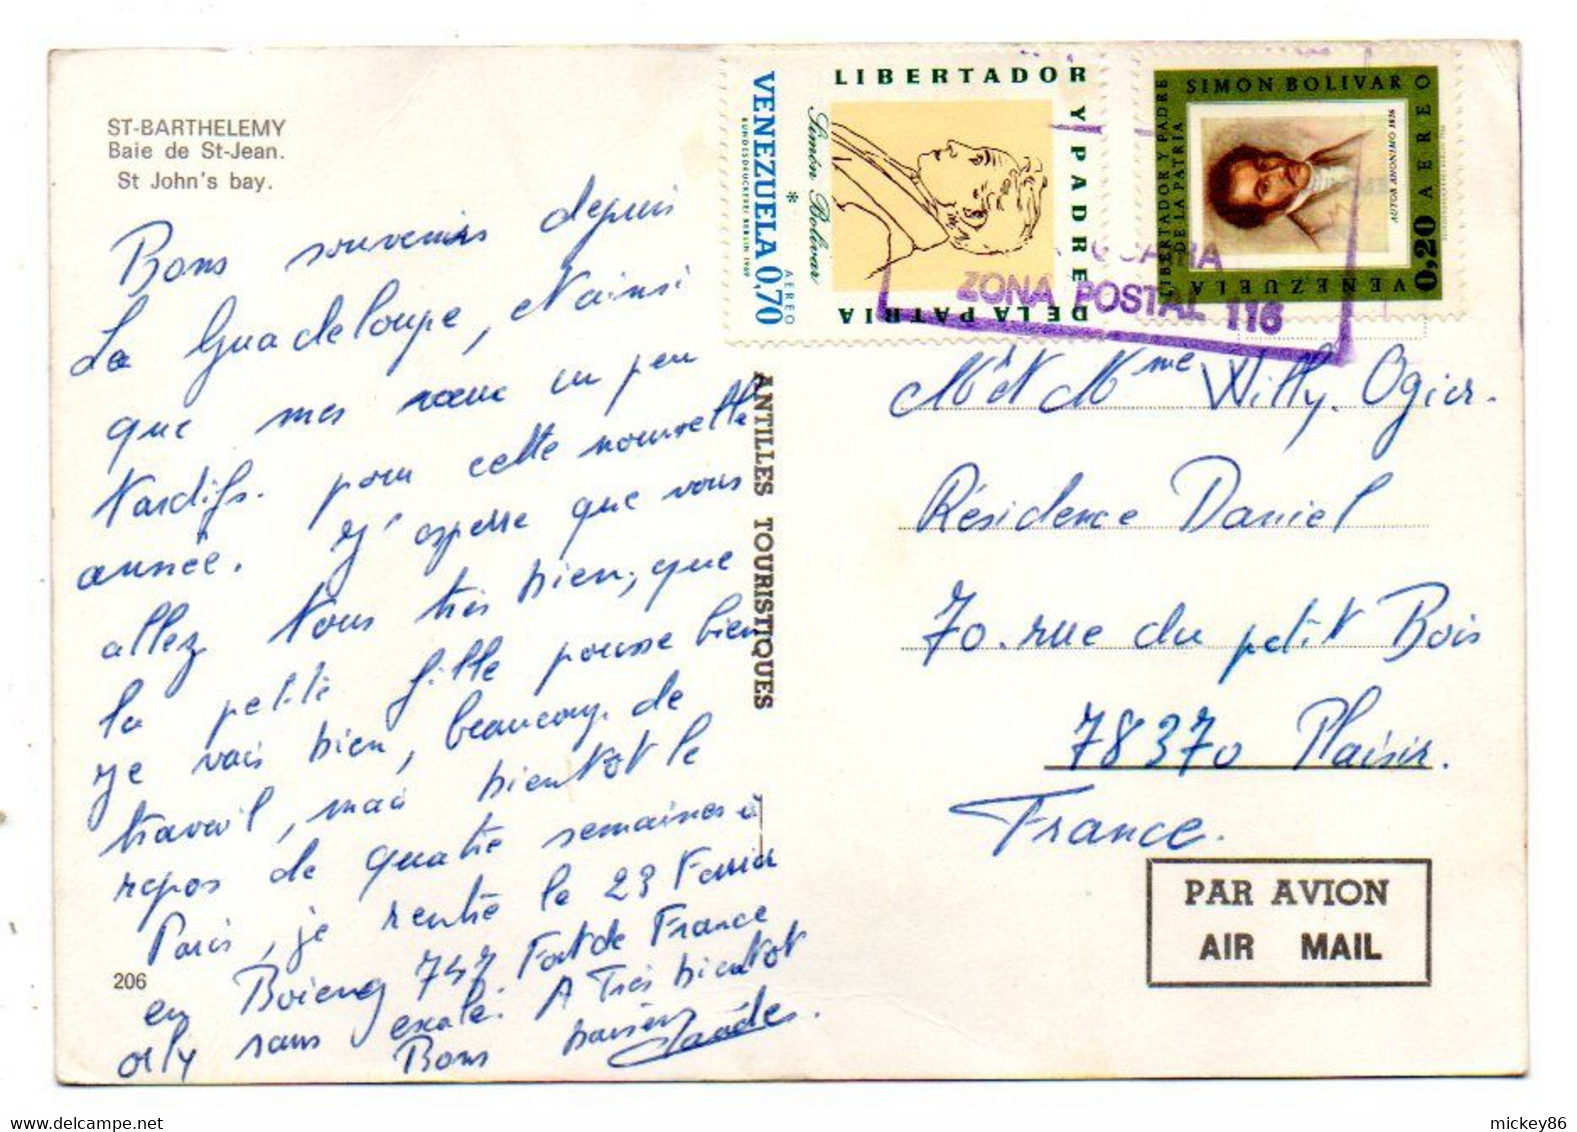 ST-BARTHELEMY
Baie de St-Jean.
St John's bay.
Bons souvenirs depuis
La Guadeloupe, et ainsi
que mes vœux un peu
tardifs. pour cette nouvelle
année. J'esperre que vous
allez tous très bien, que
la petite fille pousse bien
je vais bien, beaucoup de
travail, mais bientot le
repos de quatre semaines à
Paris, je rentre le 23 Fevrier
en Boieng 747. Fort de France
orly sans escale. A Très bientot
Bons baisers
Claude.
206
ANTILLES TOURISTIQUES
VENEZUELA 0,70
AEREO
BUNDESDRUCKEREI BERLIN 1969
Simón Bolívar
LIBERTADOR Y PADRE DE LA PATRIA
SIMON BOLIVAR
AEREO
0,20
VENEZUELA
LIBERTADOR Y PADRE
DE LA PATRIA
AUTOR ANONIMO 1816
ZONA POSTAL 116
Mr et Mme Willy. Ogier.
Résidence Daniel
70. rue du petit Bois
78370 Plaisir.
France.
PAR AVION
AIR MAIL
delcampe.net
mickey86